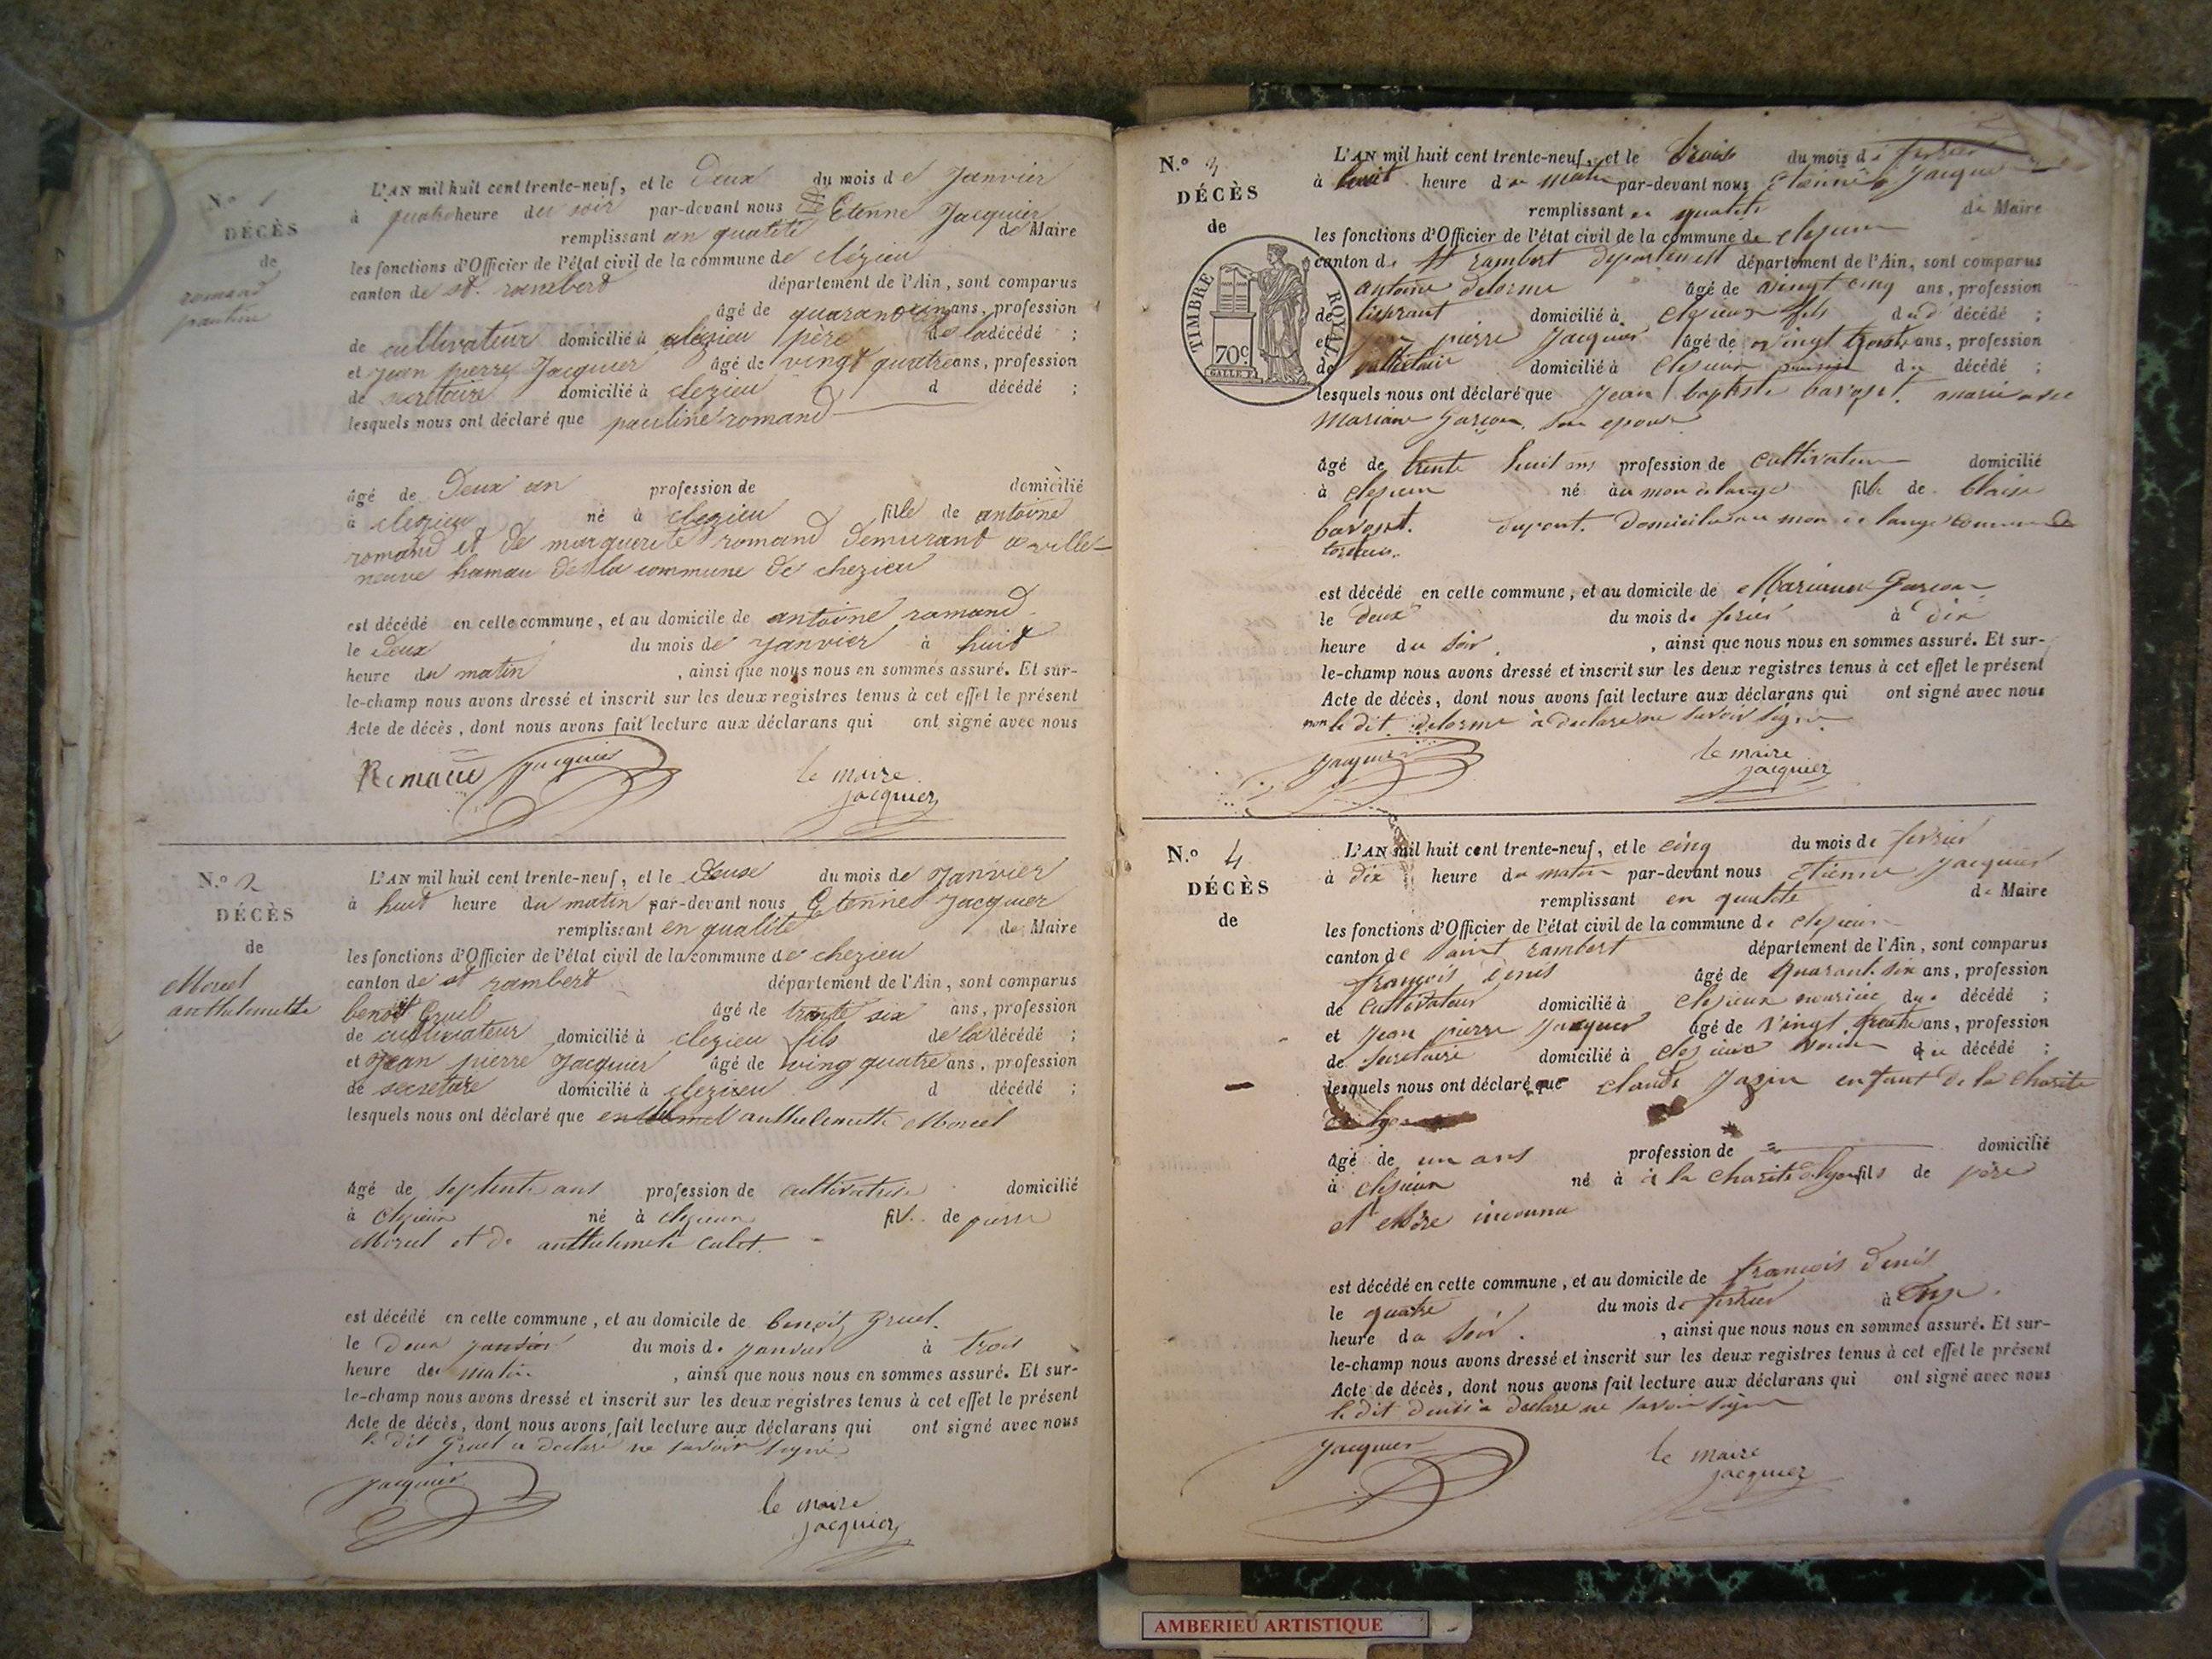 N.º 1
DÉCÈS
de
romand
pauline
L'AN mil huit cent trente-neuf, et le deux du mois de Janvier
à quatre heure du soir par-devant nous Etenne Jacquier
remplissant an qualité de Maire
les fonctions d'Officier de l'état civil de la commune de clézieu
canton de st. rambert département de l'Ain, sont comparus
âgé de ans, profession
de cultivateur domicilié à clezieu père de la décédé ;
et jean pierre Jacquier âgé de vingt quatre ans, profession
de secretaire domicilié à clezieu d décédé ;
lesquels nous ont déclaré que pauline romand
âgé de deux an profession de domicilié
à clezieu né à clezieu fille de antoine
romand et de marguerite romand demurant a ville-
neuve hamau de la commune de chezieu
est décédé en celle commune, et au domicile de antoine romand
le deux du mois de janvier à huit
heure du matin , ainsi que nous nous en sommes assuré. Et sur-
le-champ nous avons dressé et inscrit sur les deux registres tenus à cet effet le présent
Acte de décès, dont nous avons fait lecture aux déclarans qui ont signé avec nous
jacquier le maire
jacquier
N.º 2
DÉCÈS
de
Morel
anthelmette
L'AN mil huit cent trente-neuf, et le deuse du mois de Janvier
à huit heure du matin par-devant nous Etenne Jacquier
remplissant en qualité de Maire
les fonctions d'Officier de l'état civil de la commune de chezieu
canton de st rambert département de l'Ain, sont comparus
benoit Gruel âgé de trante six ans, profession
de cultivateur domicilié à clezieu fils de la décédé ;
et jean pierre Jacquier âgé de ving quatre ans, profession
de secretare domicilié à clezieu d décédé ;
lesquels nous ont déclaré que anthelmette Morel
âgé de septente ans profession de cultivatrice domicilié
à clezieu né à clezieu fil de pierre
Morel et de anthelmette culet.
est décédé en cette commune, et au domicile de benoit gruel.
le deux janvier du mois de janvier à trois
heure du matin , ainsi que nous nous en sommes assuré. Et sur-
le-champ nous avons dressé et inscrit sur les deux registres tenus à cet effet le présent
Acte de décès, dont nous avons fait lecture aux déclarans qui ont signé avec nous
le dit Gruel a declare ne savoir signé
jacquier le maire
jacquier
N.º 3
DÉCÈS
de
TIMBRE ROYAL
70c
L'AN mil huit cent trente-neuf, et le trois du mois de fevrier
à huit heure du matin par-devant nous etienne Jacquier
remplissant en qualité de Maire
les fonctions d'Officier de l'état civil de la commune de clesieu
canton de st rambert departement département de l'Ain, sont comparus
antoine delorme âgé de vingt cinq ans, profession
de domicilié à clesieux fils dud décédé ;
et jean pierre Jacquier âgé de vingt ans, profession
de domicilié à clesieu du décédé ;
lesquels nous ont déclaré que Jean baptiste marié avec
Mariane son epouse
âgé de trente huit ans profession de cultivateur domicilié
à clesieu né au mon de lange fils de blaise
Domicilié au mon de lange commune de
est décédé en cette commune, et au domicile de Marianne
le deux du mois de fevrier à dix
heure du soir , ainsi que nous nous en sommes assuré. Et sur-
le-champ nous avons dressé et inscrit sur les deux registres tenus à cet effet le présent
Acte de décès, dont nous avons fait lecture aux déclarans qui ont signé avec nous
non le dit delorme à declare ne savoir signé
jacquier le maire
jacquier
N.º 4
DÉCÈS
de
L'AN mil huit cent trente-neuf, et le cinq du mois de fevrier
à dix heure du matin par-devant nous etienne Jacquier
remplissant en qualité de Maire
les fonctions d'Officier de l'état civil de la commune de clesieu
canton de saint rambert département de l'Ain, sont comparus
françois denis âgé de quarante six ans, profession
de cultivateur domicilié à clesieux du décédé ;
et jean pierre jacquier âgé de vingt quatre ans, profession
de secretaire domicilié à clesieux du décédé ;
lesquels nous ont déclaré que claude jazin enfant de la charité
âgé de un ans profession de domicilié
à clesieux né à à la charité de lyon fils de père
et mère inconnu
est décédé en cette commune, et au domicile de francois denis
le quatre du mois de fevrier à onze
heure du soir , ainsi que nous nous en sommes assuré. Et sur-
le-champ nous avons dressé et inscrit sur les deux registres tenus à cet effet le présent
Acte de décès, dont nous avons fait lecture aux déclarans qui ont signé avec nous
le dit denis a declare ne savoir signé
jacquier le maire
jacquier
AMBERIEU ARTISTIQUE